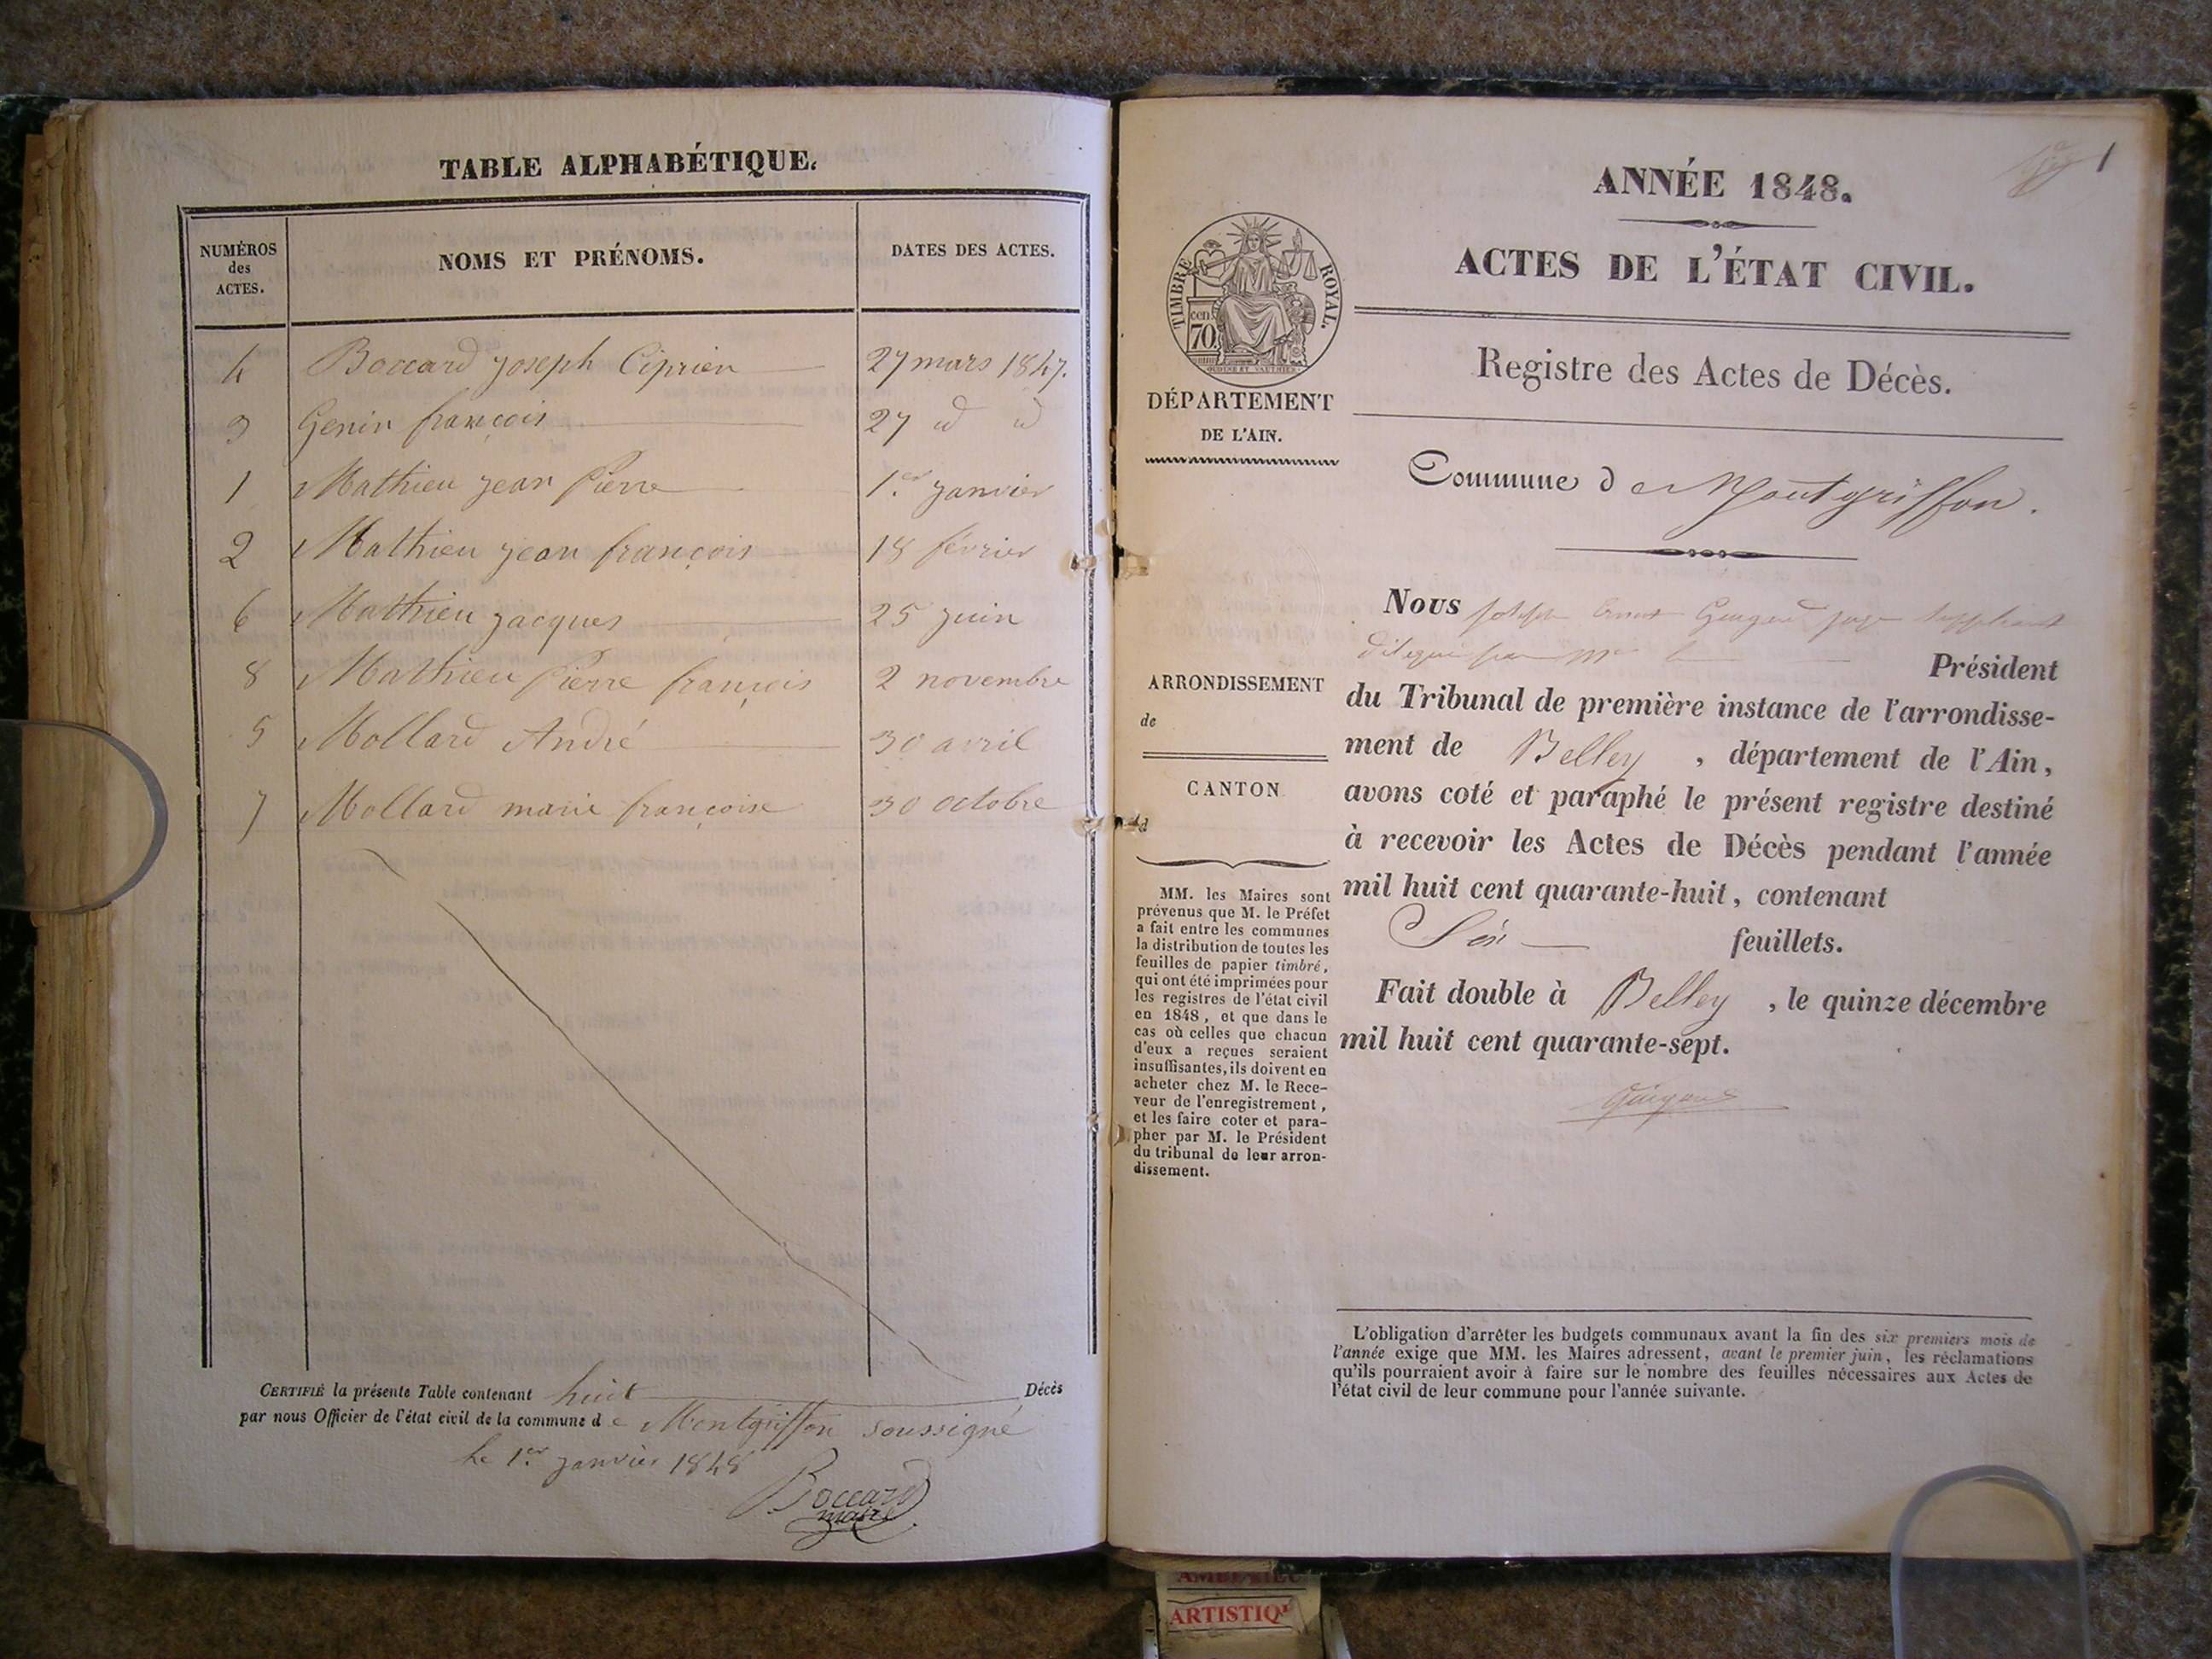 TABLE ALPHABÉTIQUE.
NUMÉROS des ACTES. NOMS ET PRÉNOMS. DATES DES ACTES.
4 Boccard joseph Ciprien 27 mars 1847.
3 Genin françois 27 id id
1 Mathieu jean Pierre 1.er janvier
2 Mathieu jean françois 18 février
6 Mathieu jacques 25 juin
8 Mathieu Pierre françois 2 novembre
5 Mollard André 30 avril
7 Mollard marie françoise 30 octobre
CERTIFIÉ la présente Table contenant huit Décès
par nous Officier de l'état civil de la commune d e Montgriffon soussigné
le 1.er janvier 1848
Boccard
maire
1
ANNÉE 1848.
ACTES DE L'ÉTAT CIVIL.
TIMBRE ROYAL.
cen. 70.
DÉPARTEMENT
DE L'AIN.
Registre des Actes de Décès.
Commune d e Montgriffon.
ARRONDISSEMENT
de
CANTON
d
MM. les Maires sont
prévenus que M. le Préfet
a fait entre les communes
la distribution de toutes les
feuilles de papier timbré,
qui ont été imprimées pour
les registres de l'état civil
en 1848, et que dans le
cas où celles que chacun
d'eux a reçues seraient
insuffisantes, ils doivent en
acheter chez M. le Rece-
veur de l'enregistrement,
et les faire coter et para-
pher par M. le Président
du tribunal de leur arron-
dissement.
Nous joseph juge suppléant
Président
du Tribunal de première instance de l'arrondisse-
ment de Belley, département de l'Ain,
avons coté et paraphé le présent registre destiné
à recevoir les Actes de Décès pendant l'année
mil huit cent quarante-huit, contenant
Six feuillets.
Fait double à Belley, le quinze décembre
mil huit cent quarante-sept.
L'obligation d'arrêter les budgets communaux avant la fin des six premiers mois de
l'année exige que MM. les Maires adressent, avant le premier juin, les réclamations
qu'ils pourraient avoir à faire sur le nombre des feuilles nécessaires aux Actes de
l'état civil de leur commune pour l'année suivante.
ARTISTIQ